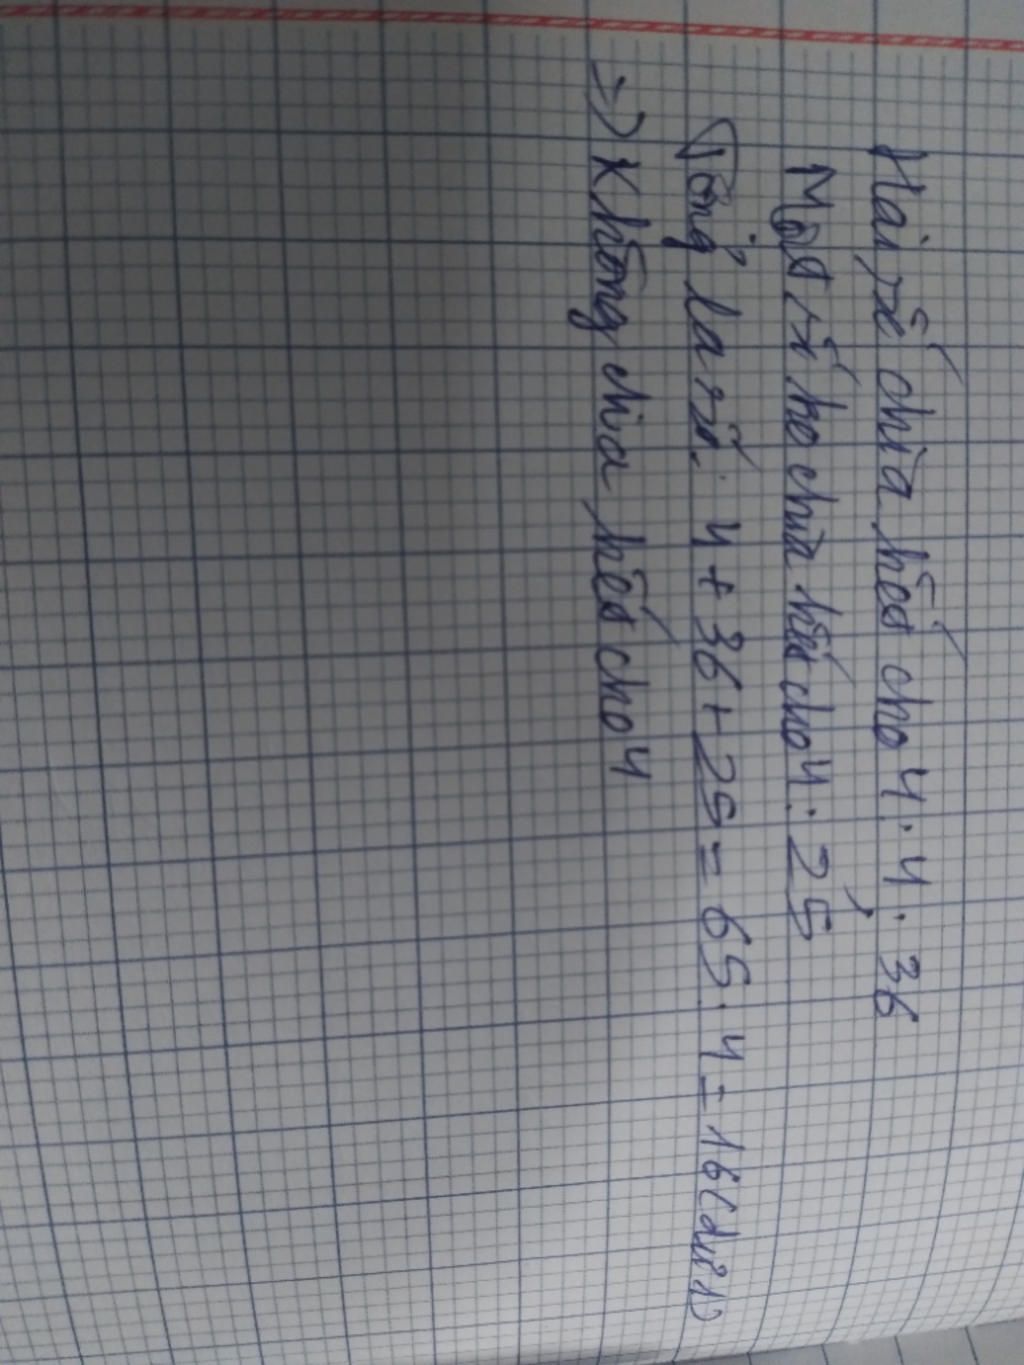 Hai số chia hết cho 4: 4; 36
Một số ko chia hết cho 4: 25
Tổng 3 số: 4 + 36 + 25 = 65 : 4 = 16 (dư 1)
=> Không chia hết cho 4